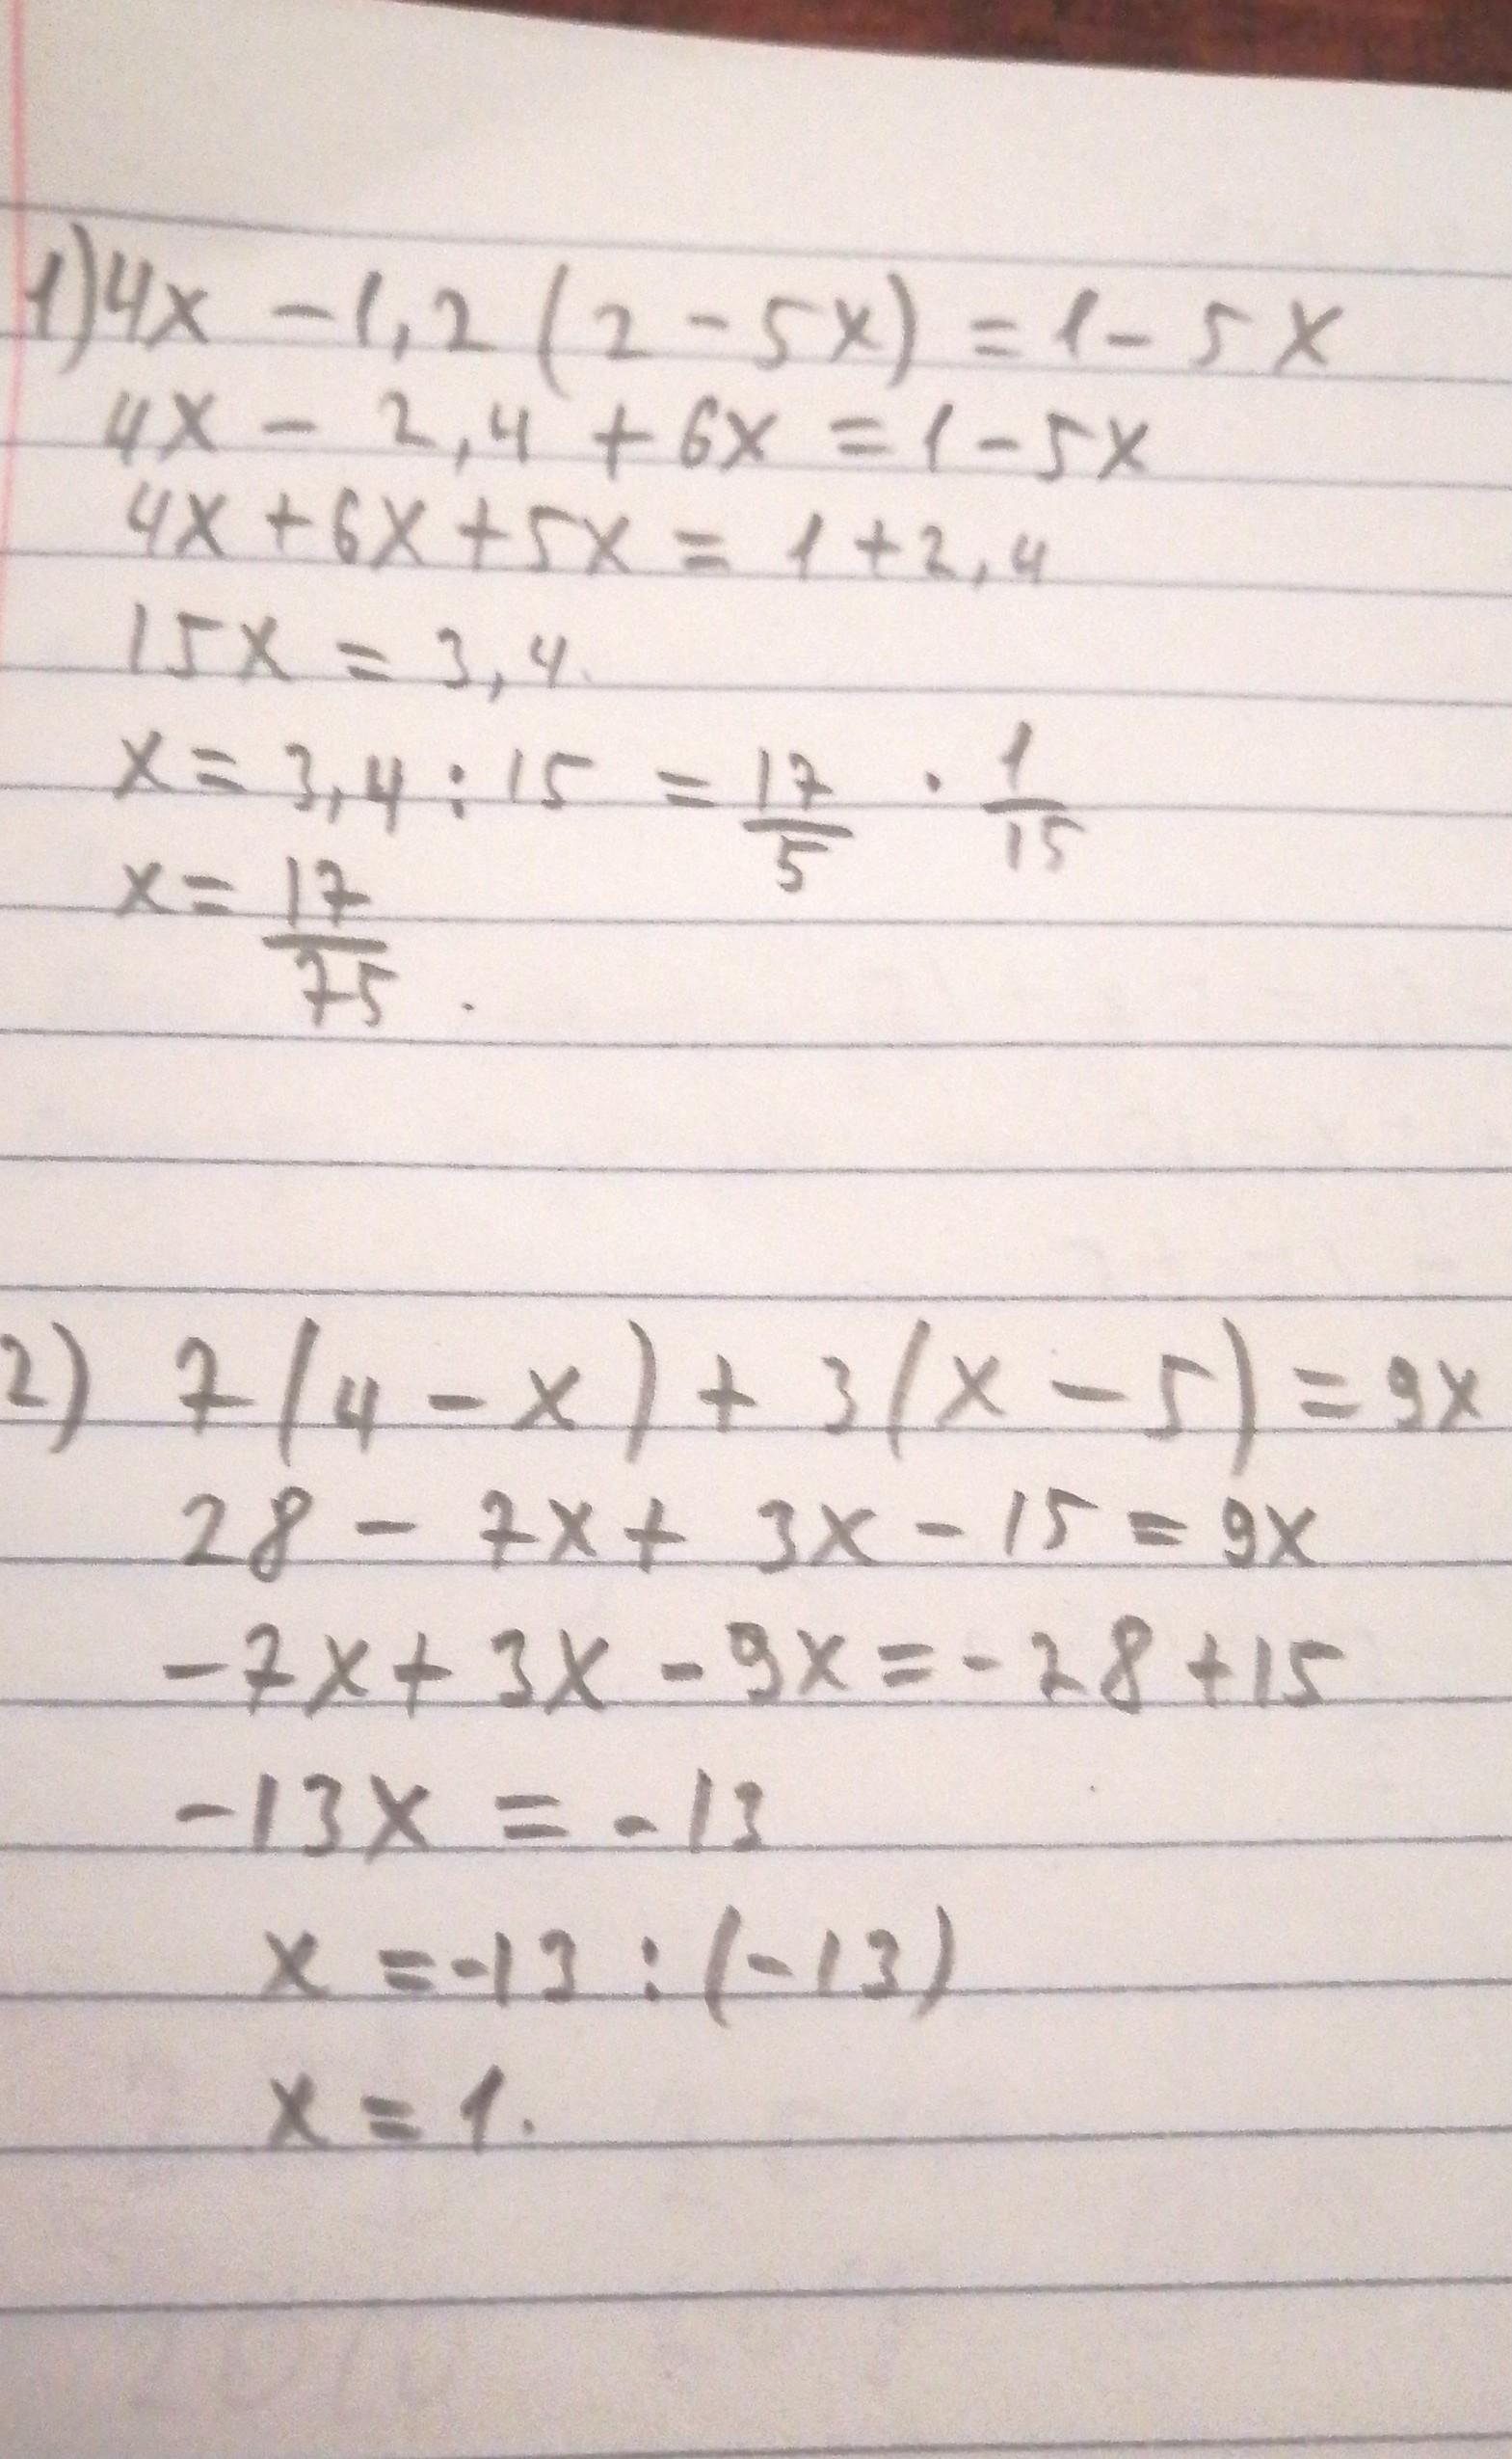 1) 4x - 1,2 (2 - 5x) = 1 - 5x
4x - 2,4 + 6x = 1 - 5x
4x + 6x + 5x = 1 + 2,4
15x = 3,4.
x = 3,4 : 15 = 17/5 · 1/15
x = 17/75.
2) 7(4 - x) + 3(x - 5) = 9x
28 - 7x + 3x - 15 = 9x
-7x + 3x - 9x = -28 + 15
-13x = -13
x = -13 : (-13)
x = 1.